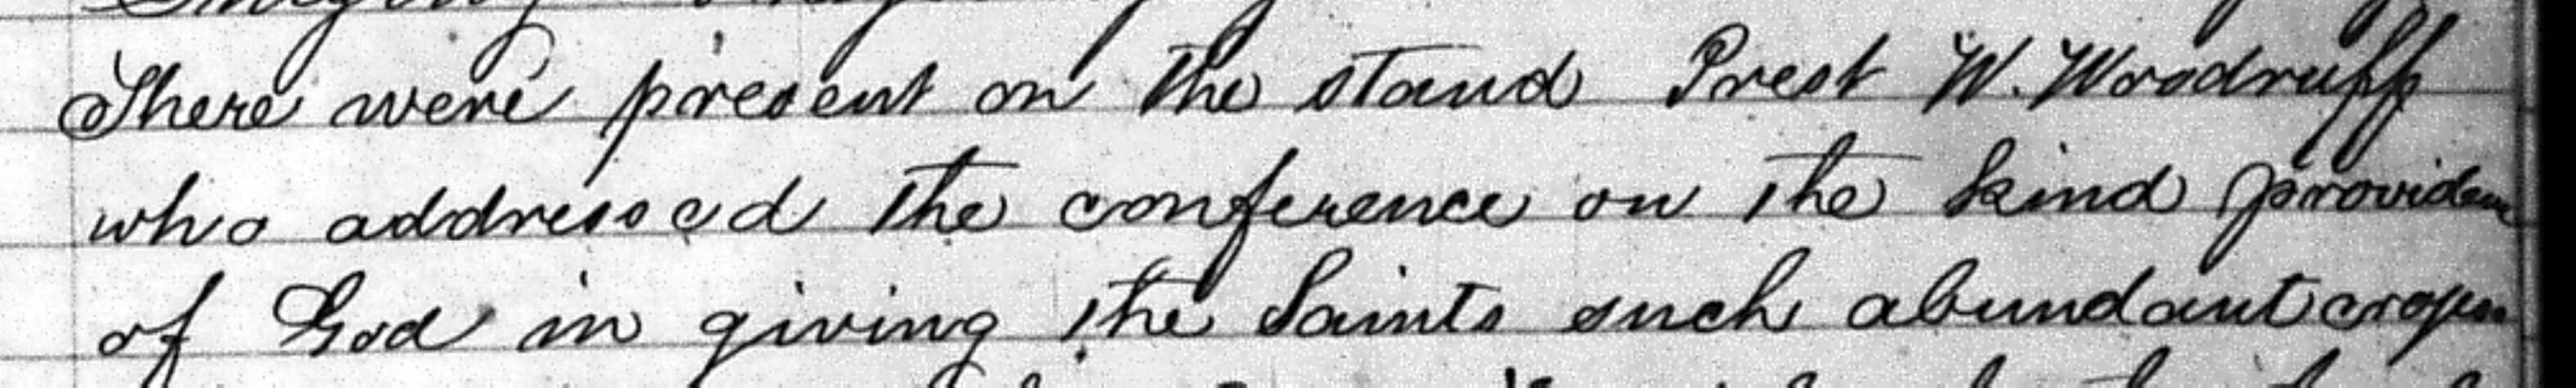 There were present on the stand Prest W. Woodruff
who addressed the conference on the kind providence
of God in giving the Saints such abundant crops